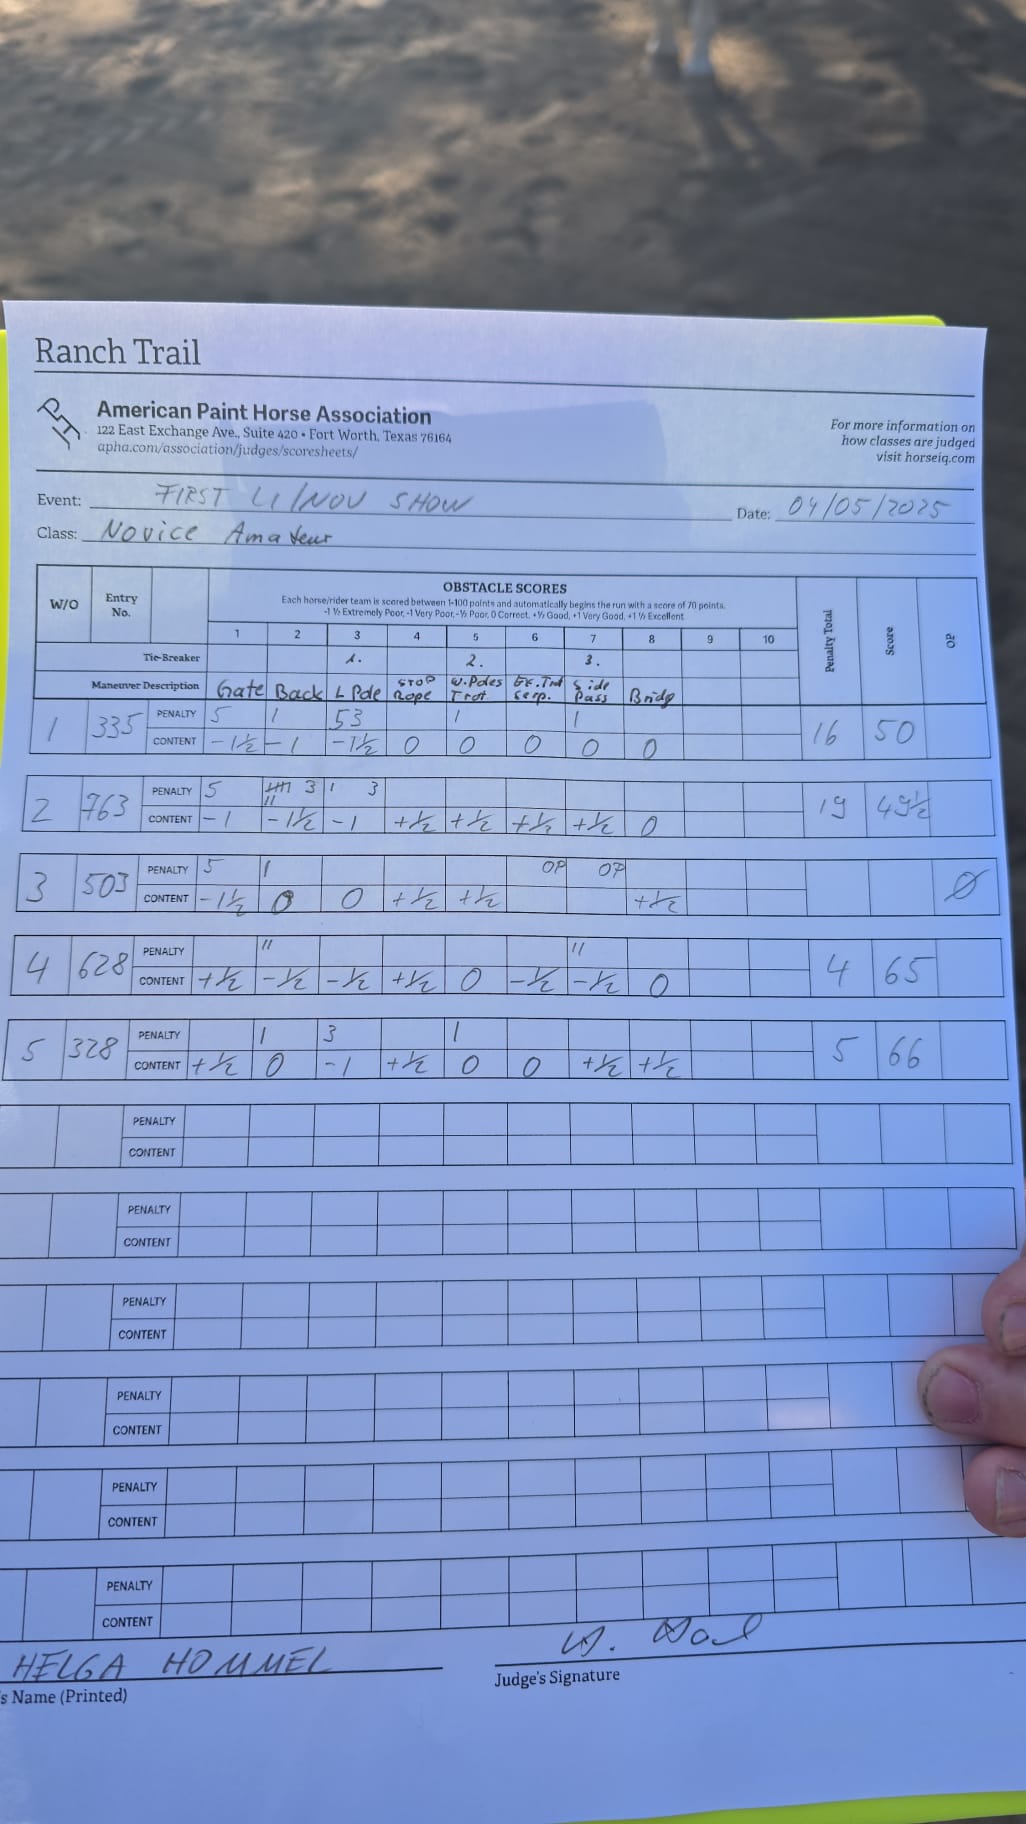 Ranch Trail
American Paint Horse Association
122 East Exchange Ave., Suite 420 • Fort Worth, Texas 76164
apha.com/association/judges/scoresheets/
For more information on
how classes are judged
visit horseiq.com
Event: FIRST LI/NOV SHOW Date: 04/05/2025
Class: Novice Amateur
W/O Entry No. OBSTACLE SCORES Penalty Total Score OP
Each horse/rider team is scored between 1-100 points and automatically begins the run with a score of 70 points.
-1 ½ Extremely Poor, -1 Very Poor, -½ Poor, 0 Correct, +½ Good, +1 Very Good, +1 ½ Excellent
1 2 3 4 5 6 7 8 9 10
Tie-Breaker 1. 2. 3.
Maneuver Description Gate Back L Pole STOP Rope W.Poles Trot Ex.Trot Serp. Side Pass Bridg
1 335 PENALTY 5 1 53 1 1 16 50
CONTENT -1½ -1 -1½ 0 0 0 0 0
2 763 PENALTY 5 3 1 3 19 49½
CONTENT -1 -1½ -1 +½ +½ +½ +½ 0
3 503 PENALTY 5 1 OP OP
CONTENT -1½ 0 0 +½ +½ +½
4 628 PENALTY 11 11 4 65
CONTENT +½ -½ -½ +½ 0 -½ -½ 0
5 328 PENALTY 1 3 1 5 66
CONTENT +½ 0 -1 +½ 0 0 +½ +½
PENALTY
CONTENT
PENALTY
CONTENT
PENALTY
CONTENT
PENALTY
CONTENT
PENALTY
CONTENT
PENALTY
CONTENT
HELGA HOMMEL
s Name (Printed)
Judge's Signature